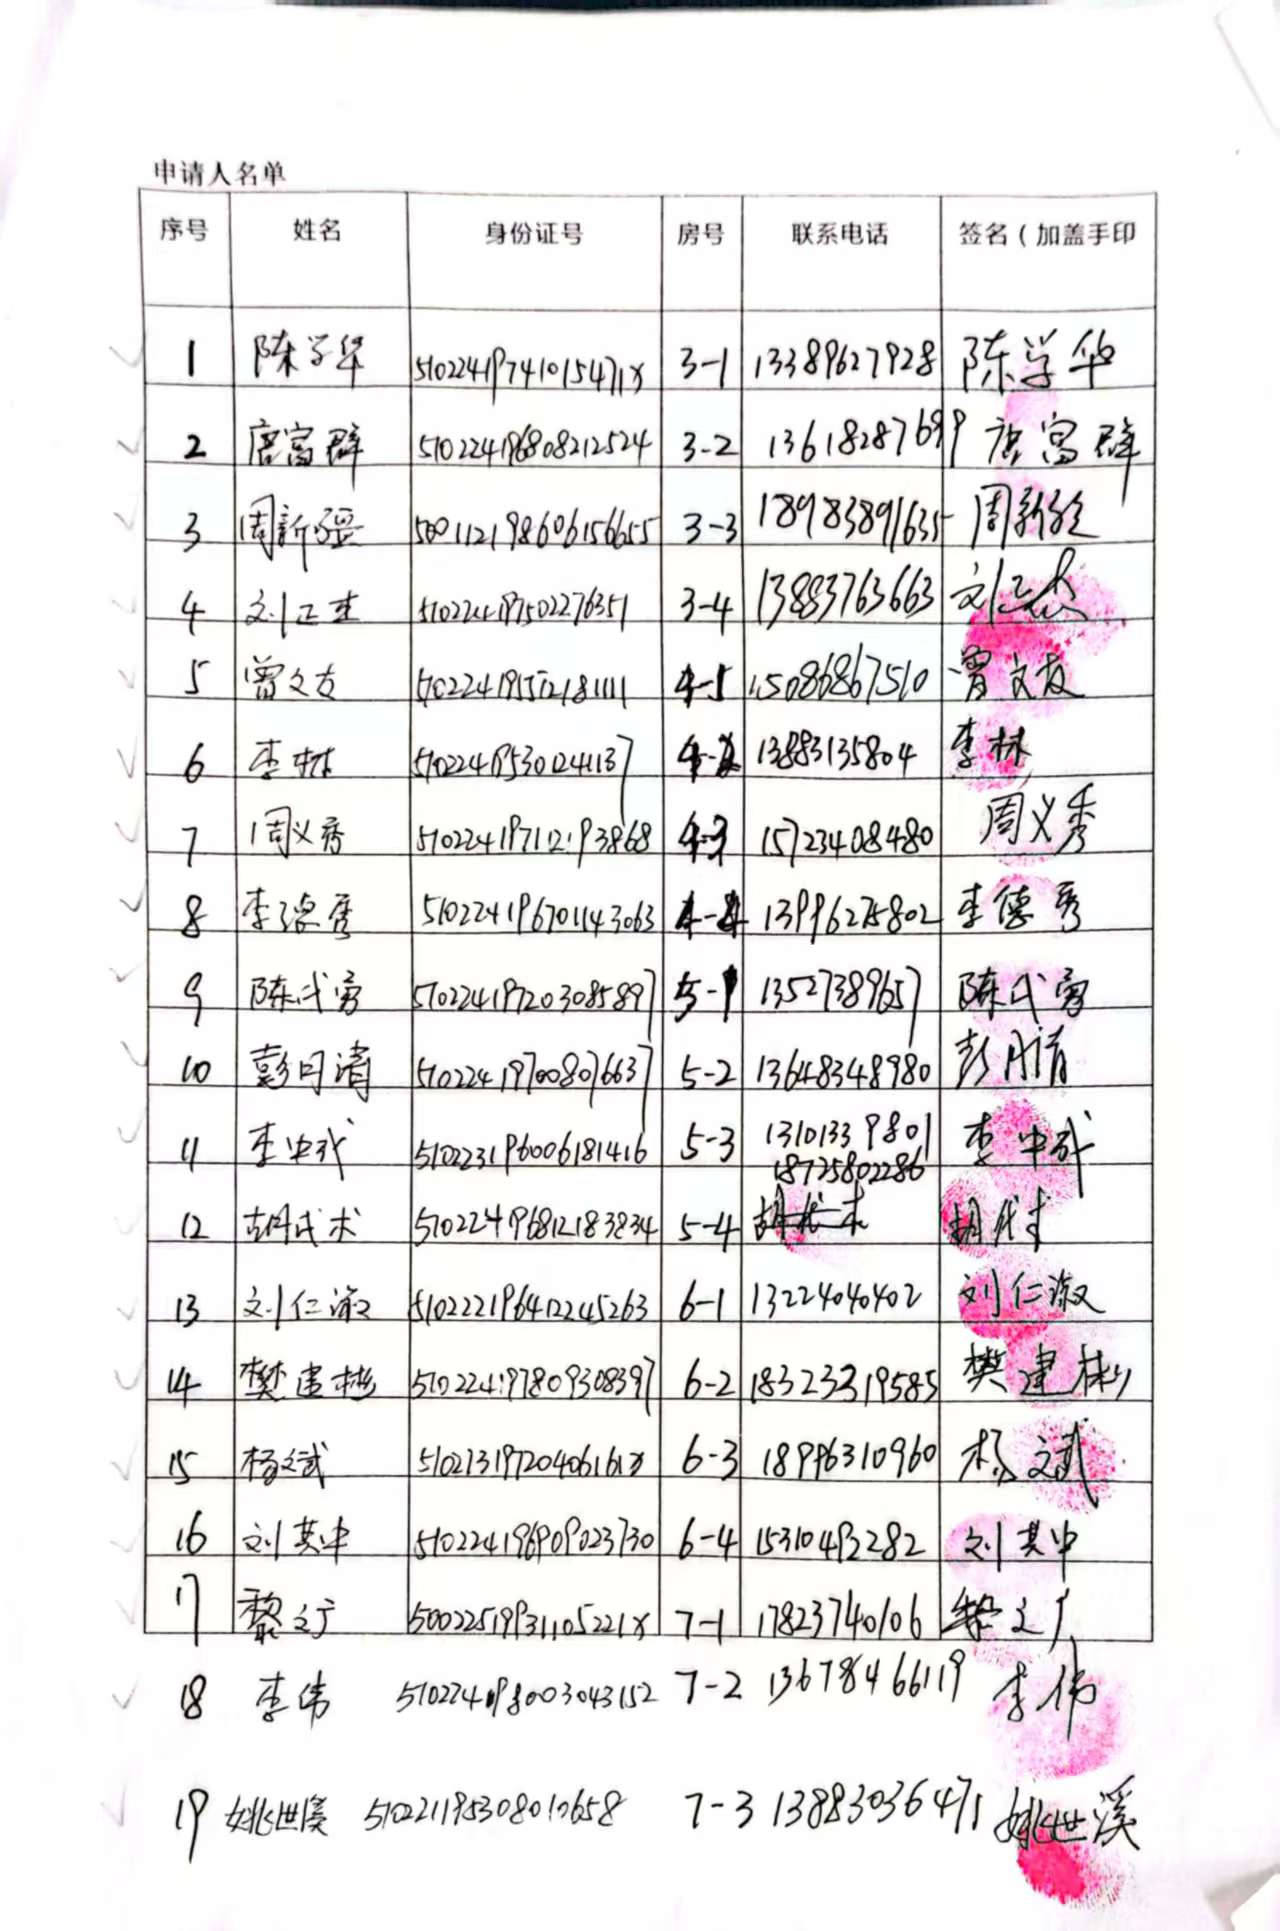 申请人名单
序号 姓名 身份证号 房号 联系电话 签名(加盖手印
1 陈学华 51022419741015471X 3-1 13389627928 陈学华
2 唐富群 510224196808212524 3-2 13618287699 唐富群
3 周新强 500112198606156655 3-3 18983891635 周新强
4 刘正杰 510224197502276351 3-4 13883763663 刘正杰
5 曾文友 510224195512181111 4-1 15086867510 曾文友
6 李林 510224195301244137 4-2 13883135804 李林
7 周义秀 510224197112193868 4-3 15723408480 周义秀
8 李德秀 510224196701143063 4-4 13996275802 李德秀
9 陈代勇 510224197203085897 5-1 13527389657 陈代勇
10 彭月清 510224197008076637 5-2 13648348980 彭月清
11 李中武 510223196006181416 5-3 13101339801 李中武
18725802286
12 胡代术 510224196812183834 5-4 胡代术 胡代术
13 刘仁淑 510222196412245263 6-1 13224040402 刘仁淑
14 樊建彬 510224197809308397 6-2 18323319585 樊建彬
15 杨文武 51021319720406161X 6-3 18996310960 杨文武
16 刘其中 510224196909023730 6-4 15310492282 刘其中
17 黎文广 50022519931105221X 7-1 17823740106 黎文广
18 李伟 510224198003043152 7-2 13678466119 李伟
19 姚世溪 510221195308010658 7-3 13883036471 姚世溪